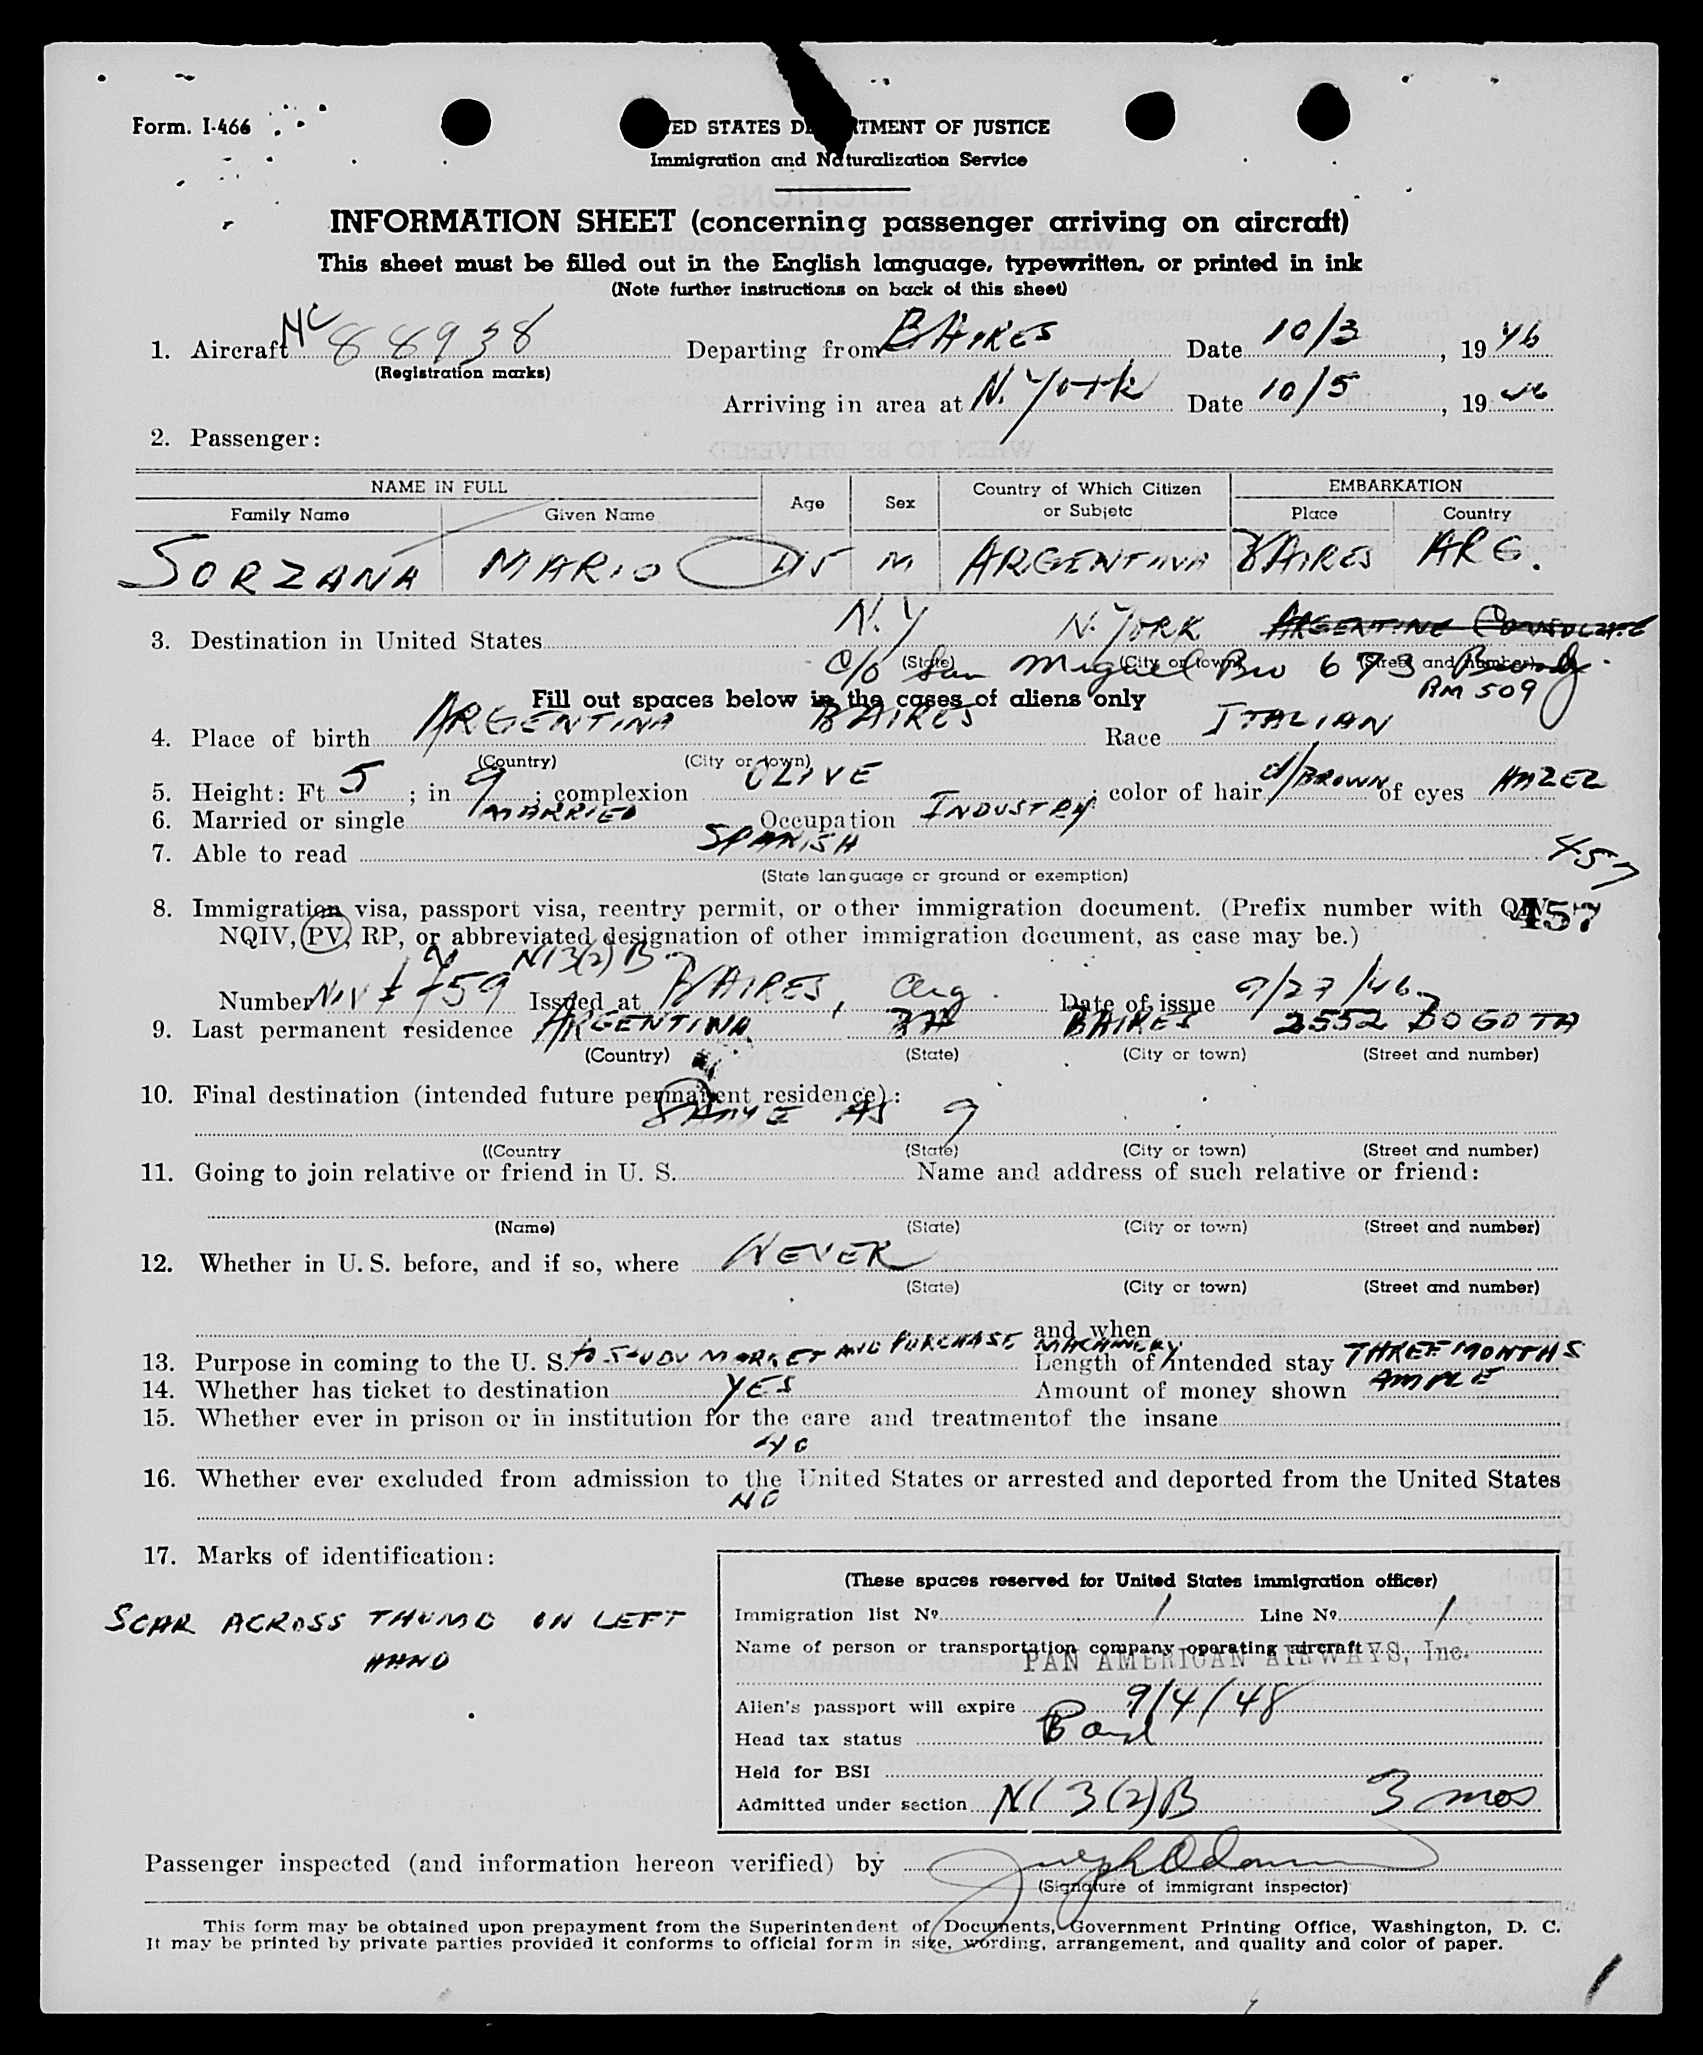 Form. I-466
ED STATES D TMENT OF JUSTICE
Immigration and Naturalization Service
INFORMATION SHEET (concerning passenger arriving on aircraft)
This sheet must be filled out in the English language, typewritten, or printed in ink
(Note further instructions on back of this sheet)
1. Aircraft NC 88938 Departing from BAIRES Date 10/3, 1946
(Registration marks)
Arriving in area at N. York Date 10/5, 1946
2. Passenger:
NAME IN FULL Age Sex Country of Which Citizen or Subjetc EMBARKATION
Family Name Given Name Place Country
SORZANA MARIO 45 M ARGENTINA BAIRES ARG.
3. Destination in United States N.Y N. YORK ARGENTINE CONSULATE
(State) (City or town) (Street and number)
c/o San Miguel Bro 673 Broadway
RM 509
Fill out spaces below in the cases of aliens only
4. Place of birth ARGENTINA BAIRES Race ITALIAN
(Country) (City or town)
5. Height: Ft 5; in 9; complexion OLIVE; color of hair d/BROWN of eyes HAZEL
6. Married or single MARRIED Occupation INDUSTRY
7. Able to read SPANISH
457
(State language or ground or exemption)
8. Immigration visa, passport visa, reentry permit, or other immigration document. (Prefix number with
457
NQIV, PV, RP, or abbreviated designation of other immigration document, as case may be.)
N 3(2) B
Number NIV 59 Issued at BAIRES, Arg. Date of issue 9/27/46
9. Last permanent residence ARGENTINA BA BAIRES 2552 BOGOTA
(Country) (State) (City or town) (Street and number)
10. Final destination (intended future permanent residence):
SAME AS 9
((Country (State) (City or town) (Street and number)
11. Going to join relative or friend in U. S. Name and address of such relative or friend:
(Name) (State) (City or town) (Street and number)
12. Whether in U. S. before, and if so, where NEVER
(State) (City or town) (Street and number)
and when
13. Purpose in coming to the U. S. to STUDY MARKET AND PURCHASE MACHINERY Length of intended stay THREE MONTHS
14. Whether has ticket to destination YES Amount of money shown AMPLE
15. Whether ever in prison or in institution for the care and treatmentof the insane
NO
16. Whether ever excluded from admission to the United States or arrested and deported from the United States
NO
17. Marks of identification:
SCAR ACROSS THUMB ON LEFT
HAND
(These spaces reserved for United States immigration officer)
Immigration list Nº 1 Line Nº 1
Name of person or transportation company operating aircraft
PAN AMERICAN AIRWAYS, Inc.
Alien's passport will expire 9/4/48
Head tax status Bond
Held for BSI
Admitted under section N 3(2)B 3 mos
Passenger inspected (and information hereon verified) by
(Signature of immigrant inspector)
This form may be obtained upon prepayment from the Superintendent of Documents, Government Printing Office, Washington, D. C.
It may be printed by private parties provided it conforms to official form in size, wording, arrangement, and quality and color of paper.